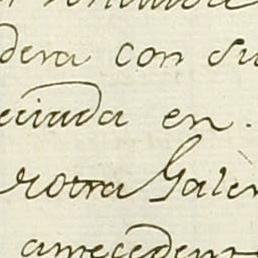 dera con su
eciada en
rotra Galer
antecedent